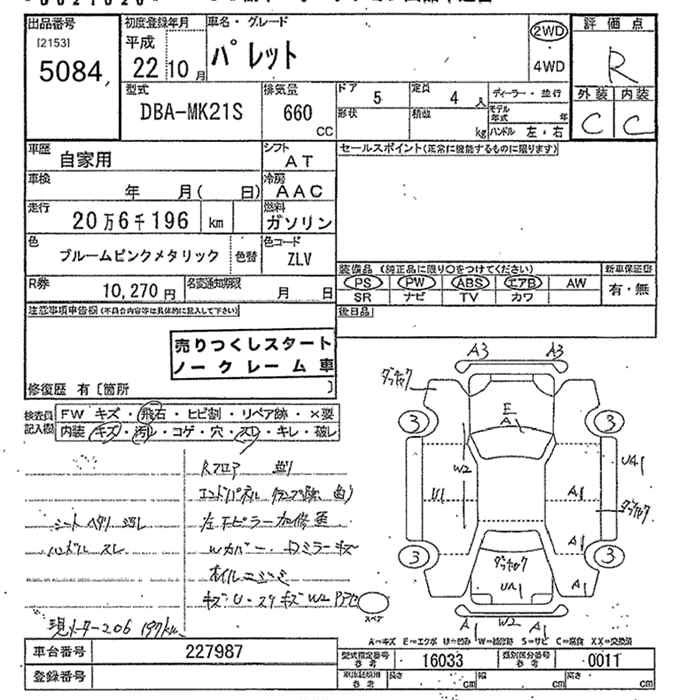 出品番号
[2153]
5084
初度登録年月
平成
22 10月
車名・グレード
パレット
2WD
・
4WD
評価点
R
外装 内装
C C
型式
DBA-MK21S
排気量
660
CC
ドア
5
定員
4 人
形状
積数
kg
ディーラー・並行
モデル年式 年
ハンドル 左・右
車歴
自家用
シフト
AT
車検
年 月( 日)
冷房
AAC
走行
20万6千196 km
燃料
ガソリン
色
ブルームピンクメタリック
色替
色コード
ZLV
R券
10,270円
名変通知期限
月 日
セールスポイント(正常に機能するものに限ります)
装備品 (純正品に限り○をつけてください)
新車保証書
PS PW ABS エアB AW
有・無
SR ナビ TV カワ
後日品
注意事項申告欄(不具合内容等は具体的に記入して下さい)
売りつくしスタート
ノークレーム車
修復歴 有[箇所 ]
検査員記入欄
FW キズ・飛石・ヒビ割・リペア跡・×要
内装 キズ・汚レ・コゲ・穴・スレ・キレ・破レ
シートヘタリ 汚レ
ハンドル スレ
現メーター206197km
A3 A3
3 3
E
A1
W2
U1
A1
UA1
A1
3 3
UA1
A1
A1 W2 A1
スペア
A=キズ E=エクボ U=凹み W=補修跡 S=サビ C=腐食 XX=交換済
車台番号
227987
登録番号
型式指定番号
参考
16033
類別区分番号
参考
0011
長さ cm
幅 cm
高さ cm